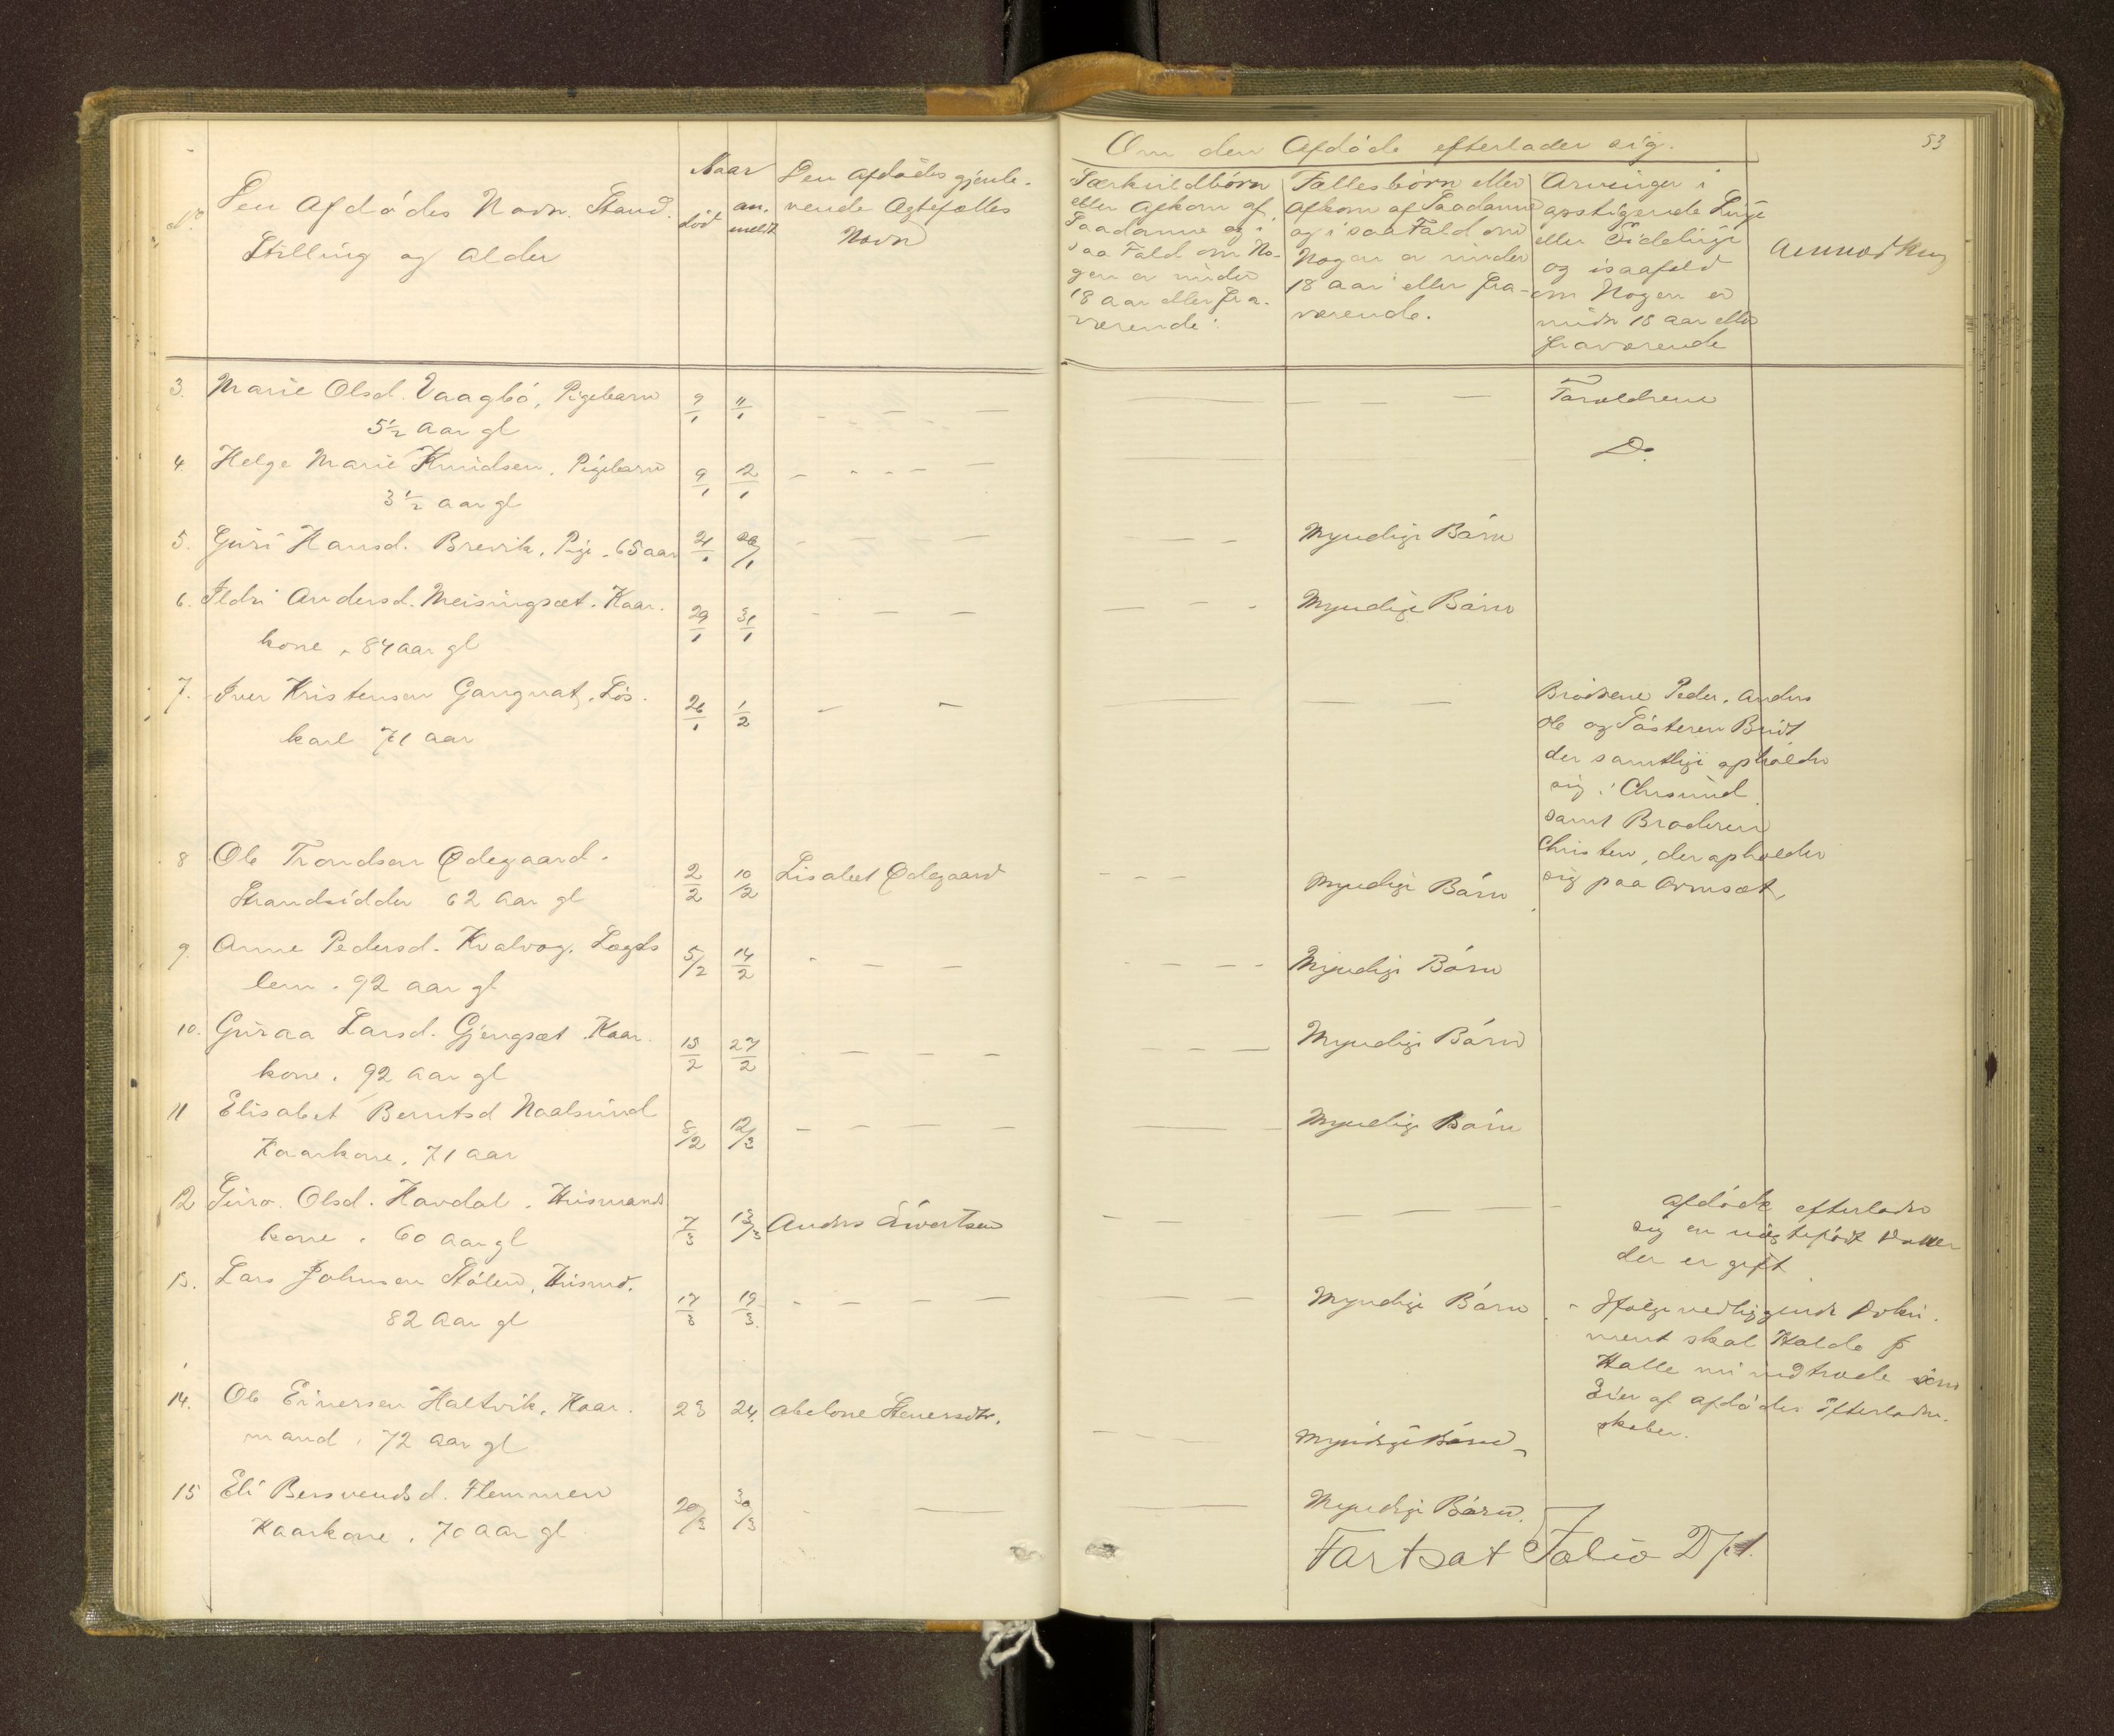 53
Om den Afdøde efterlader sig.
No
Den Afdødes Navn. Stand.
Stilling og Alder
Naar
død
an-
meldt
Den Afdødes gjenle-
vende Ægtefælles
Navn
Særkuldbørn
eller Afkom af
Saadanne og i
saa Fald om No-
gen er under
18 Aar eller fra-
værende.
Fællesbørn eller
Afkom af Saadanne
og i saa Fald om
Nogen er under
18 Aar eller fra-
værende.
Arvinger i
opstigende Linje
eller Sidelinje
og isaafald
om Nogen er
under 18 Aar eller
fraværende
Anmærkng
3. Marie Olsd. Vaagbø, Pigebarn 9/1 11/1 — — — — — — Forældrene
5 1/2 Aar gl
4. Helge Marie Knudsen, Pigebarn 9/1 12/1 — — — — Do
3 1/2 Aar gl
5. Guri Hansd. Brevik, Pige, 65 aar 21/1 26/1 — — — — — Myndige Børn
6. Ildri Andersd. Meisingsæt. Kaar- 29/1 31/1 — — — — — Myndige Børn
kone, 84 aar gl
7. Iver Kristensen Gangnat, Løs- 26/1 1/2 — — — — Brødrene Peder, Anders
karl 71 aar
Ole og Søsteren Berit
der samtlige opholder
sig i Chrsund
samt Broderen
Christen, der opholder
sig paa Ormsæt
8 Ole Trondsen Ødegaard. 2/2 10/2 Lisabet Ødegaard — — — Myndige Børn
Strandsidder 62 Aar gl
9. Anne Pedersd. Kvalvog. Lægds 5/2 14/2 — — — — — Myndige Børn
lem. 92 aar gl
10. Guraa Larsd. Gjengsæt. Kaar- 15/2 27/2 — — — — — Myndige Børn
kone. 92 Aar gl
11 Elisabet Berntsd Naalsund 8/2 12/3 — — — — — Myndige Børn
Kaarkone, 71 aar
12 Guro Olsd. Havdal. Husmands 7/3 13/3 Anders Sivertsen — — — — — Afdøde efterlader
kone. 60 Aar gl
sig en uægtefødt Datter
der er gift
13. Lars Johnsen Stølen, Husmd. 17/3 19/3 — — — — — Myndige Børn - Ifølge vedliggende Doku-
82 Aar gl
ment skal Haldo J
Halle nu indtræde som
Eier af afdødes Efterladen-
skaber.
14. Ole Einersen Haltvik, Kaar- 23 24. Abelone Steinersdtr. — — — Myndige Børn
mand, 72 aar gl
15 Eli Bersvendsd. Flemmen 20/3 30/3 — — — Myndige Børn.
Kaarkone. 70 Aar gl
Fortsat Folio 271.